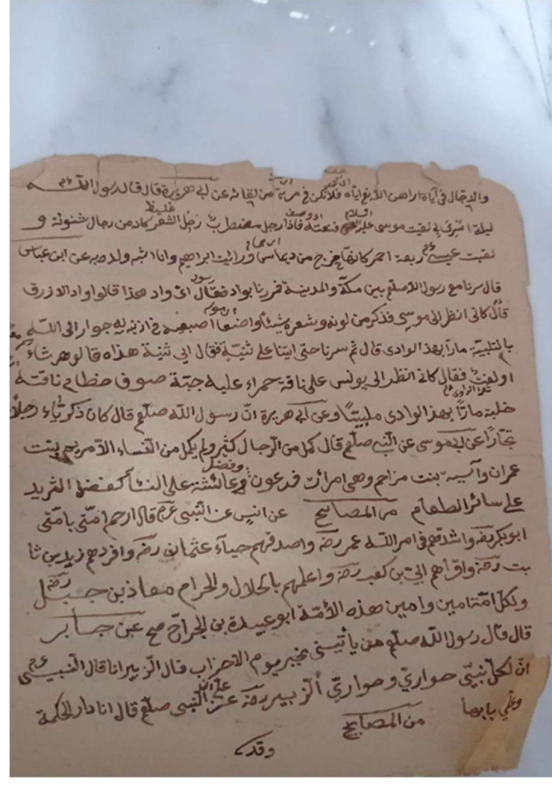 والدجال في آيات اراهن الله اياه فلا تكن في مرية من لقائه عن ابى هريرة قال قال رسول الله
ليلة اسرى بى لقيت موسى عليه السلام فنعته فاذا رجل مضطرب رجل الشعر كانه من رجال شنوئة و
لقيت عيسى ربعة احمر كانما خرج من ديماس ورايت ابراهيم وانا اشبه ولده به عن ابن عباس
قال سرنا مع رسول الله صلعم بين مكة والمدينة فمررنا بواد فقال اى واد هذا قالوا وادالازرق
قال كانى انظر الى موسى فذكر من لونه وشعره شيئا واضعا اصبعيه في اذنيه له جوار الى الله
بالتلبية مارا بهذا الوادى قال ثم سرنا حتى اتينا على ثنية فقال اى ثنية هذه قالوا هرشاء
او لفت فقال كانى انظر الى يونس على ناقة حمراء عليه جبة صوف خطام ناقته
خلبة مارا بهذا الوادى ملبيا وعن ابى هريرة ان رسول الله صلعم قال كان زكرياء رجلا
نجارا عن ابى موسى عن النبى صلعم قال كمل من الرجال كثير ولم يكمل من النساء الا مريم بنت
عمران وآسية بنت مزاحم وهى امرات فرعون وفضل عائشة على النساء كفضل الثريد
على سائر الطعام من المصابيح عن انس عن النبى قال ارحم امتى بامتى
ابو بكر رضه واشدهم فى امر الله عمر رضه واصدقهم حياء عثمان رضه وافرضهم زيد بن ثا
بت رضه واقراهم ابي بن كعب رضه واعلمهم بالحلال والحرام معاذ بن جبل رضه
ولكل امة امين وامين هذه الامة ابو عبيدة بن الجراح صح عن جابر
قال قال رسول الله صلعم من ياتينى بخبر يوم الاحزاب قال الزبير انا قال النبى
ان لكل نبى حوارى وحوارى الزبير رضه عن على النبى صلعم قال انا دار الحكمة
وعلي بابها من المصابيح
وقد